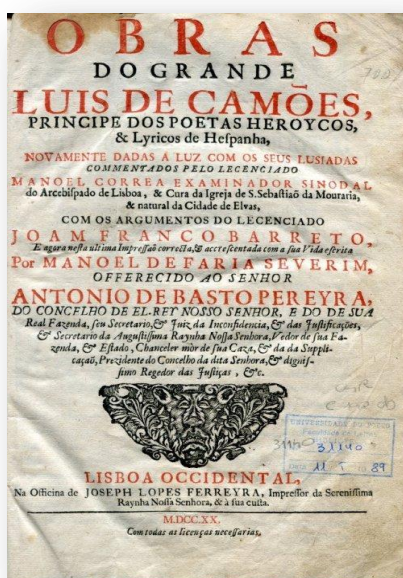 OBRAS
DO GRANDE
LUIS DE CAMÕES,
PRINCIPE DOS POETAS HEROYCOS,
& Lyricos de Heſpanha,
NOVAMENTE DADAS A LUZ COM OS SEUS LUSIADAS
COMMENTADOS PELO LECENCIADO
MANOEL CORREA EXAMINADOR SINODAL
do Arcebiſpado de Lisboa, & Cura da Igreja de S. Sebaſtiaõ da Mouraria,
& natural da Cidade de Elvas,
COM OS ARGUMENTOS DO LECENCIADO
JOAM FRANCO BARRETO,
E agora neſta ultima Impreſſaõ correcta, & accreſcentada com a ſua Vida eſcrita
Por MANOEL DE FARIA SEVERIM,
OFFERECIDO AO SENHOR
ANTONIO DE BASTO PEREYRA,
DO CONCELHO DE EL-REY NOSSO SENHOR, E DO DE SUA
Real Fazenda, ſeu Secretario, & Juiz da Inconfidencia, & das Juſtificações,
& Secretario da Auguſtiſſima Raynha Noſſa Senhora, Vedor de ſua Fa-
zenda, & Eſtado, Chanceler mòr de ſua Caza, & da da Suppli-
caçaõ, Prezidente do Concelho da dita Senhora, & digniſ-
ſimo Regedor das Juſtiças, &c.
UNIVERSIDADE DO PORTO
31140
LISBOA OCCIDENTAL,
Na Officina de JOSEPH LOPES FERREYRA, Impreſſor da Sereniſſima
Raynha Noſſa Senhora, & à ſua cuſta.
M.DCC.XX.
Com todas as licenças neceſſarias.